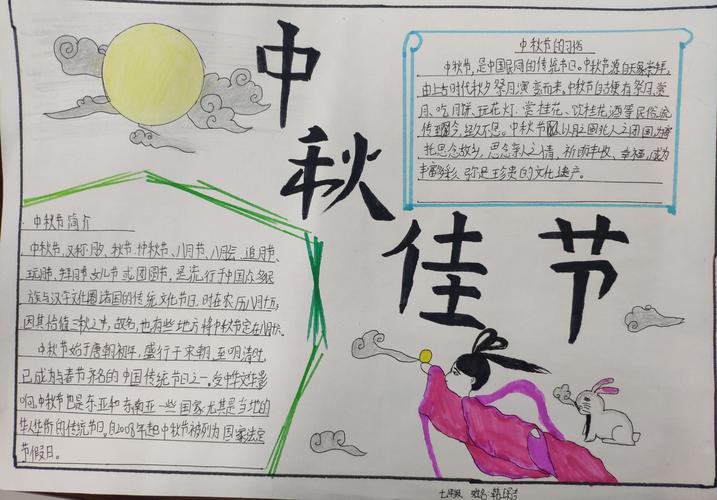 中秋佳节
中秋节的习俗
中秋节,是中国民间的传统节日。中秋节源自天象崇拜,
由上古时代秋夕祭月演变而来。中秋节自古便有祭月、赏
月、吃月饼、玩花灯、赏桂花、饮桂花酒等民俗,流
传至今,经久不息。中秋节以月之圆兆人之团圆,为寄
托思念故乡,思念亲人之情,祈盼丰收、幸福,成为
丰富多彩、弥足珍贵的文化遗产。
中秋节简介
中秋节,又称月夕、秋节、仲秋节、八月节、八月会、追月节、
玩月节、拜月节、女儿节或团圆节,是流行于中国众多民
族与汉字文化圈诸国的传统文化节日,时在农历八月十五,
因其恰值三秋之半,故名,也有些地方将中秋节定在八月十六。
中秋节始于唐朝初年,盛行于宋朝,至明清时,
已成为与春节齐名的中国传统节日之一。受中华文华影
响,中秋节也是东亚和东南亚一些国家尤其是当地的
华人华侨的传统节日。自2008年起中秋节被列为国家法定
节假日。
七年级 姓名:韩